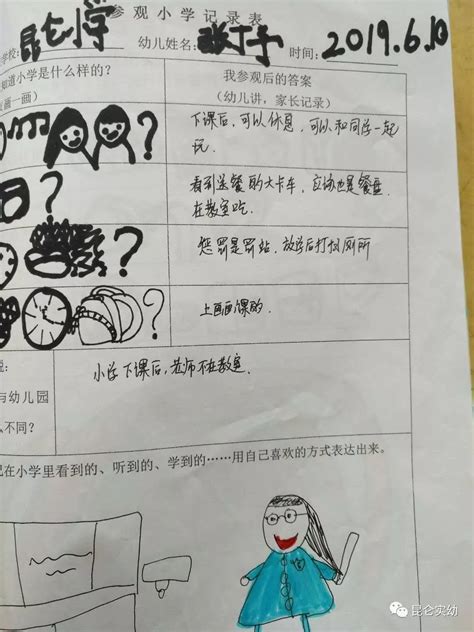 参观小学记录表
学校:昆仑小学 幼儿姓名: 时间:2019.6.10
知道小学是什么样的? 我参观后的答案
画一画) (幼儿讲,家长记录)
下课后,可以休息,可以和同学一起
玩.
?
看到送餐的大卡车,应该也是餐盘
在教室吃.
?
惩罚是罚站,放学后打扫厕所
?
上画画课的.
?
说:
与幼儿园
么不同?
小学下课后,老师不在教室.
记在小学里看到的、听到的、学到的……用自己喜欢的方式表达出来。
昆仑实幼